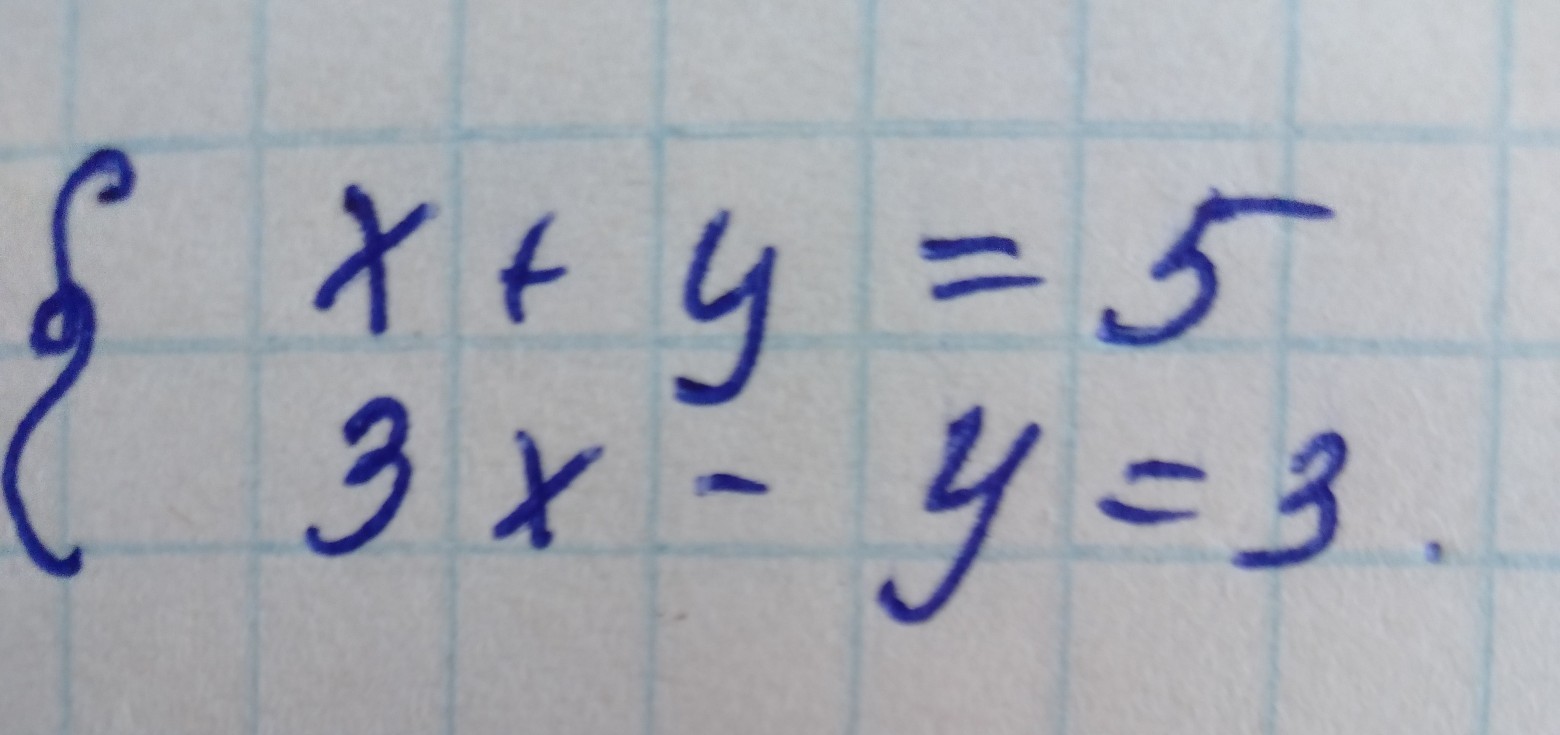 x + y = 5
3x - y = 3.